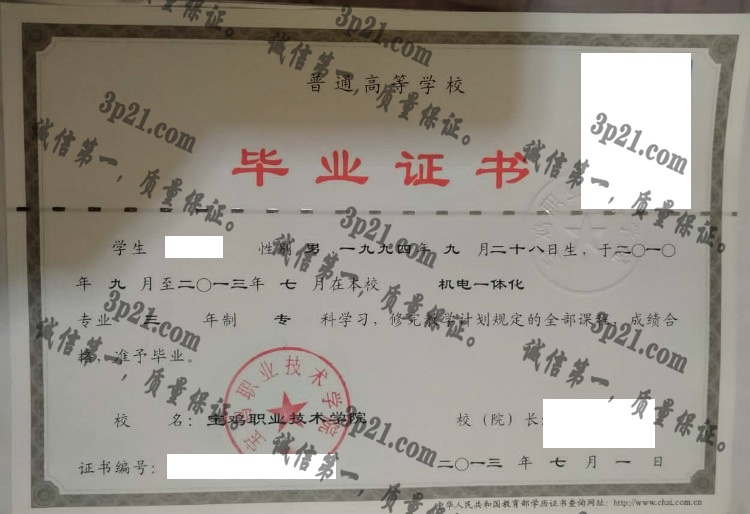 普通高等学校
毕业证书
学生 性别 男,一九九四年 九 月二十八日生,于二〇一〇
年 九 月至二〇一三年 七 月在本校 机电一体化
专业 三 年制 专 科学习,修完教学计划规定的全部课程,成绩合
格,准予毕业。
校 名:宝鸡职业技术学院 校(院)长:
证书编号: 二〇一三 年 七 月 一 日
中华人民共和国教育部学历证书查询网址:http://www.chsi.com.cn
宝鸡职业技术学院
3p21.com
诚信第一,质量保证。
3p21.com
诚信第一,质量保证。
3p21.com
诚信第一,质量保证。
3p21.com
诚信第一,质量保证。
3p21.com
诚信第一,质量保证。
3p21.com
诚信第一,质量保证。
3p21.com
诚信第一,质量保证。
3p21.com
诚信第一,质量保证。